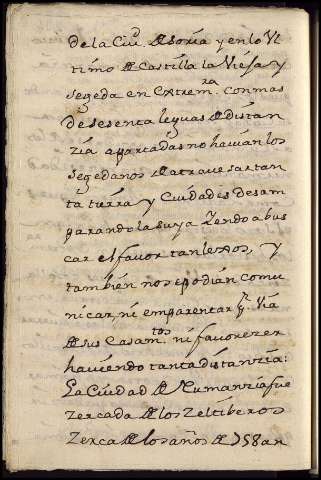 de la Ciud. de Soria y en lo Vl
timo de Castilla la Vieja y
segeda en Extremra. con mas
de sesenta leguas de distan
zia apartadas no havian los
segedanos de atravesar tan
ta tierra y Ciudades desam
parando la suya Yendo a bus
car el favor tan lexos, y
tambien no se podian comu
nicar, ni emparentar pr. Via
de sus Casamtos. ni favorezer
haviendo tanta distanzia:
La Ciudad de Numanzia fue
zercada de los Zeltiberos
Zerca de los años de 158 an